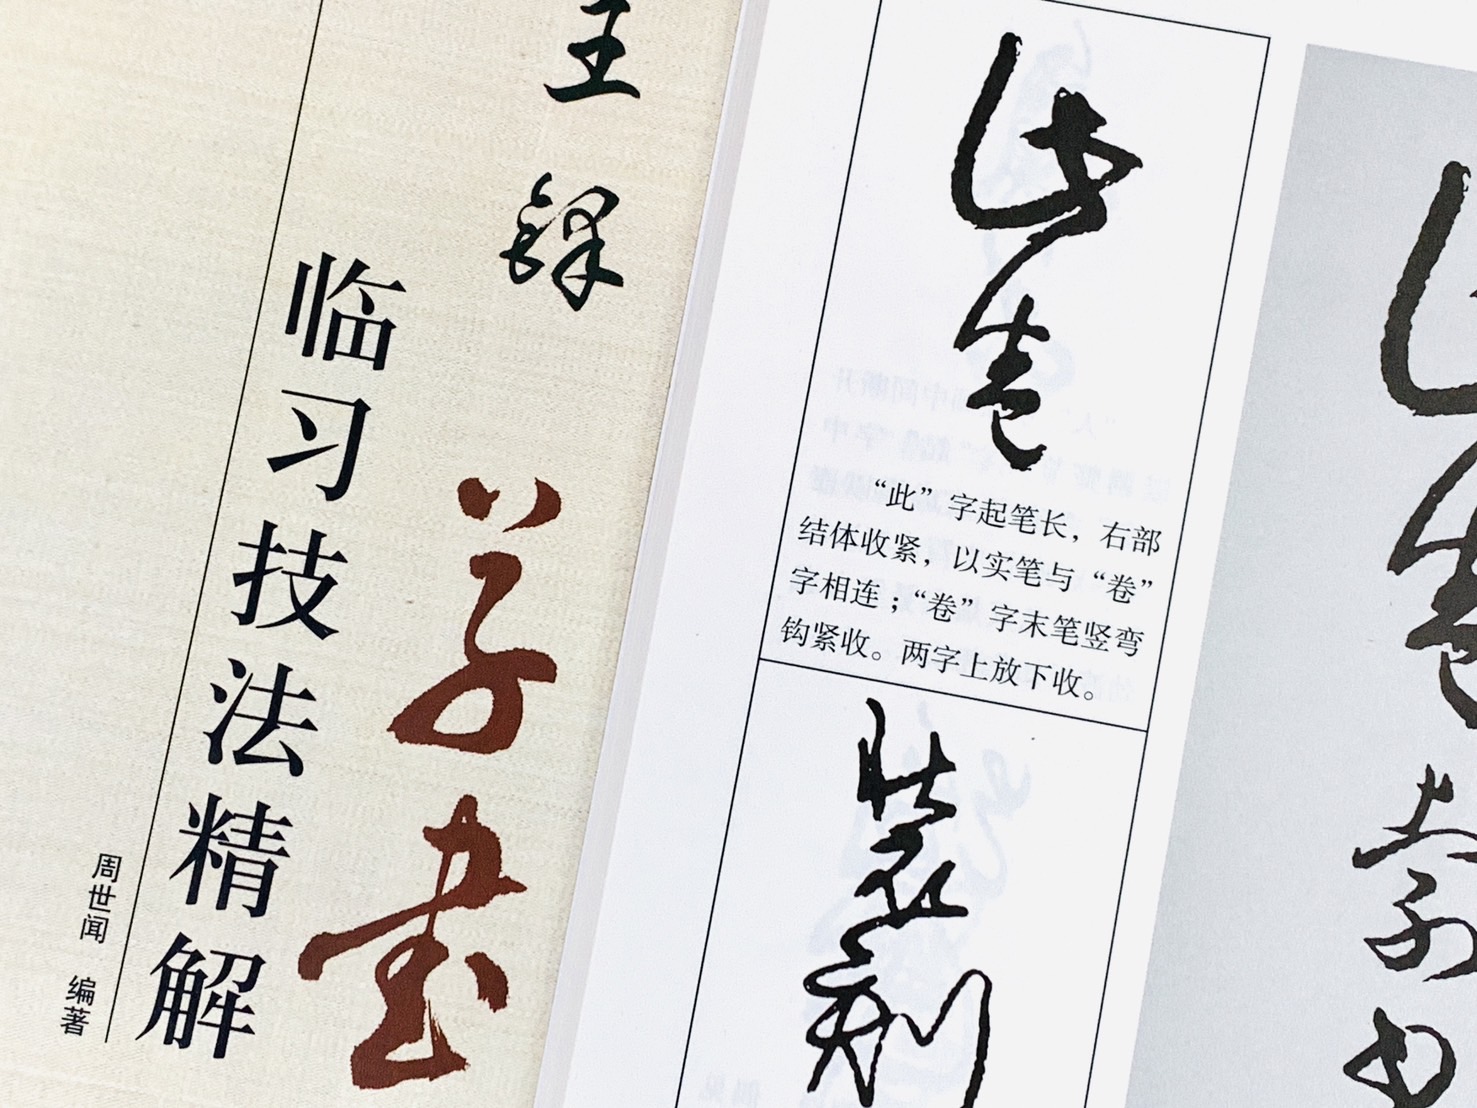 王铎
草书
临习技法精解
周世闻 编著
此卷
“此”字起笔长，右部
结体收紧，以实笔与“卷”
字相连；“卷”字末笔竖弯
钩紧收。两字上放下收。
装制
此卷